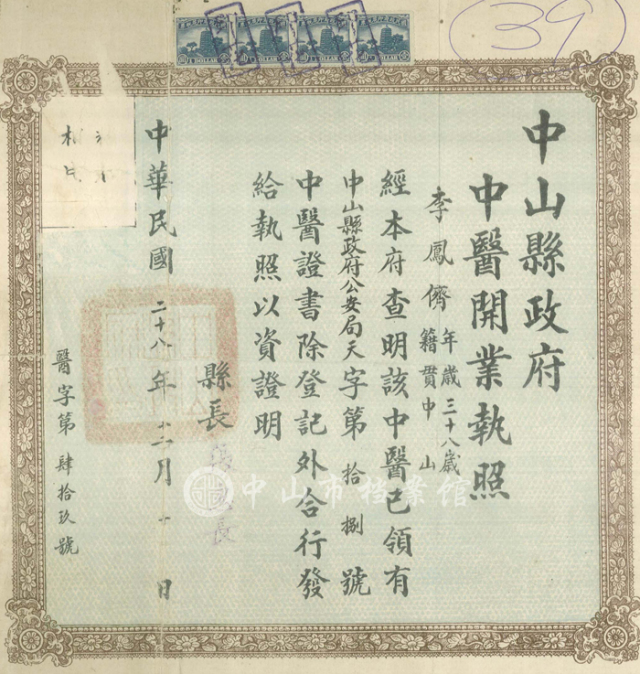 39
中山縣政府
中醫開業執照
李鳳儕 年歲三十八歲
籍貫中山
經本府查明該中醫已領有
中山縣政府公安局天字第拾捌號
中醫證書除登記外合行發
給執照以資證明
縣長
中華民國二十八年十二月 日
醫字第肆拾玖號
中山市档案馆